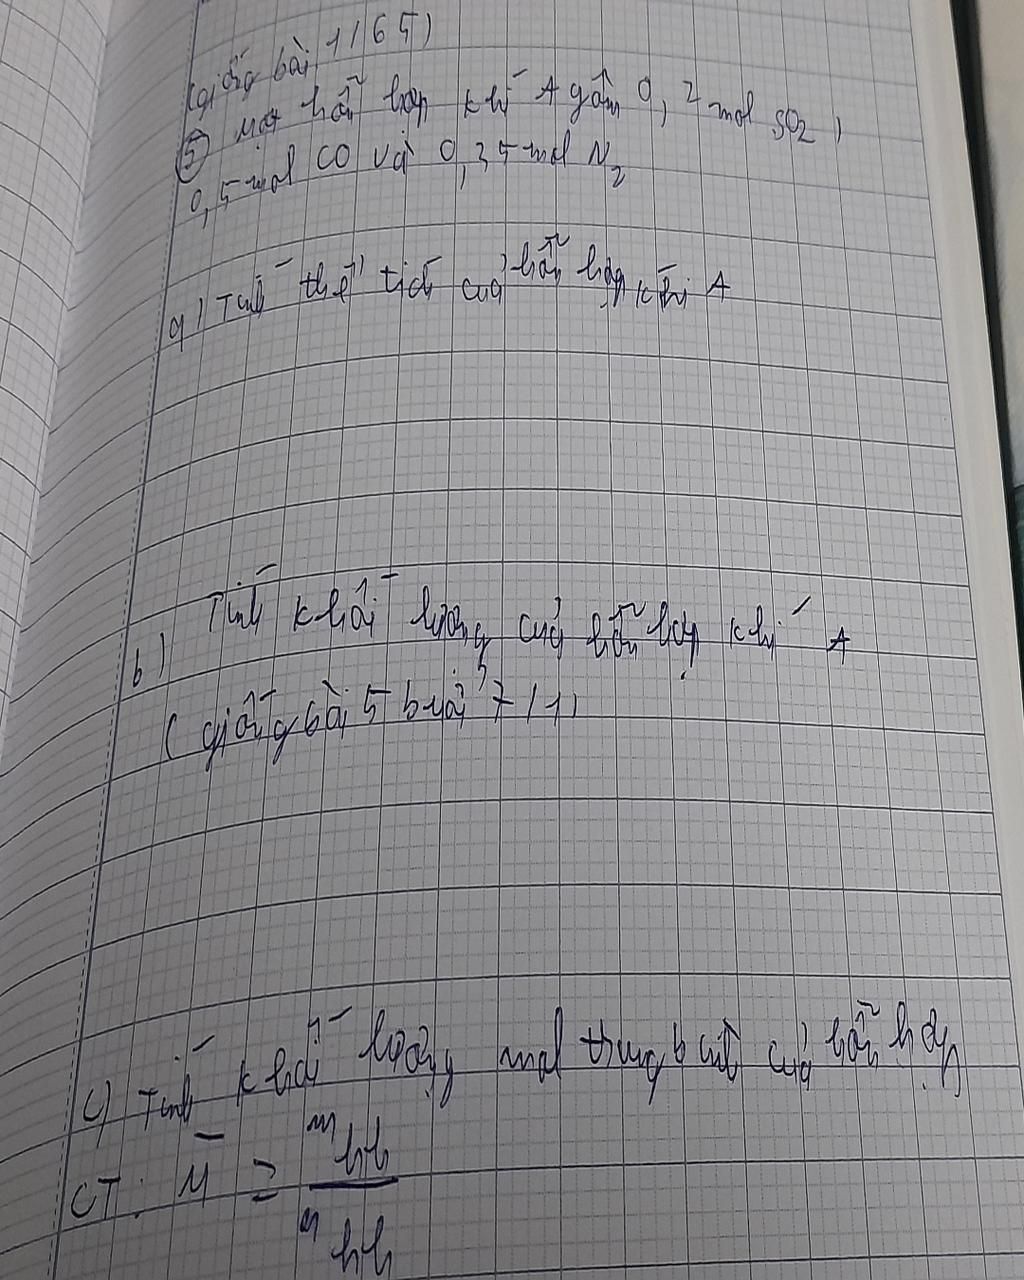 (giống bài 1/165)
⑤ Một hỗn hợp khí A gồm 0,2 mol SO₂,
0,5 mol CO và 0,35 mol N₂
a) Tính thể tích của hỗn hợp khí A
b) Tính khối lượng của hỗn hợp khí A
(giống bài 5 buổi 7/1)
c) Tính khối lượng mol trung bình của hỗn hợp
CT: M̅ = m hh / n hh